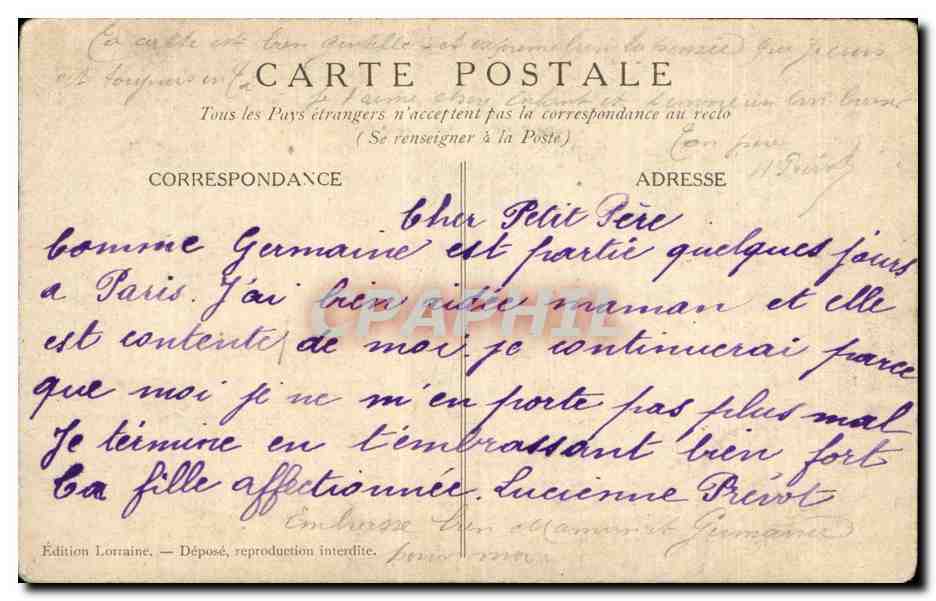 Ta carte est bien gentille et exprime bien la pensée que je
est toujours en
CARTE POSTALE
je t'aime chere enfant et t'envoie un
Tous les Pays étrangers n'acceptent pas la correspondance au recto
(Se renseigner à la Poste)
Ton pere
H Prévot
CORRESPONDANCE
ADRESSE
Cher Petit Père
Comme Germaine est partie quelques jours
a Paris. J'ai bien aidée maman et elle
est contente de moi. je continuerai parce
que moi je ne m'en porte pas plus mal
Je términe en t'émbrassant bien fort
Ta fille affectionnée. Lucienne Prévot
CPAPHIL
Embrasse bien Maman et Germaine
pour moi
Édition Lorraine. — Déposé, reproduction interdite.